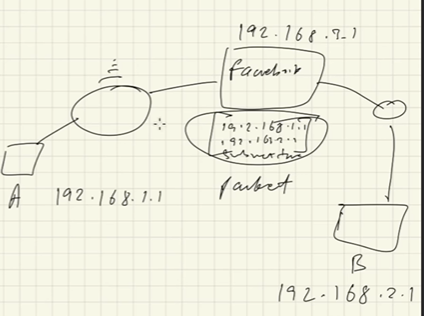 192.168.7.1
facebook
192.168.1.1
192.168.2.1
packet
A 192.168.1.1
B
192.168.2.1